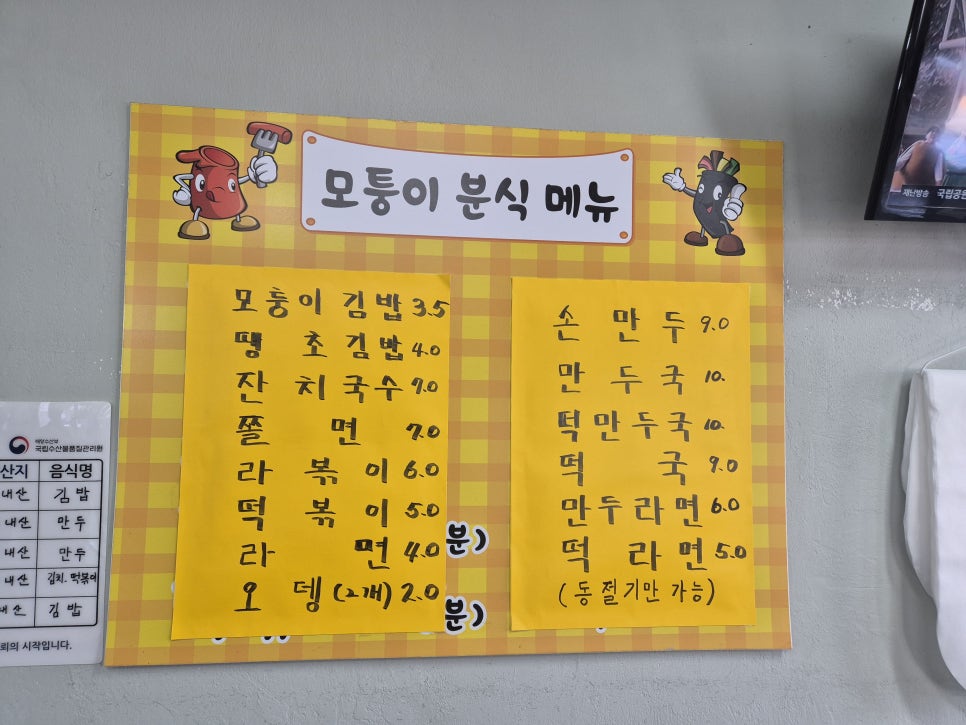 모퉁이 분식 메뉴
모퉁이 김밥 3.5
땡초김밥 4.0
잔치국수 7.0
쫄면 7.0
라볶이 6.0
떡볶이 5.0
라면 4.0
오뎅 (2개) 2.0
손만두 9.0
만두국 10.
떡만두국 10.
떡국 9.0
만두라면 6.0
떡라면 5.0
(동절기만 가능)
분)
분)
해양수산부
국립수산물품질관리원
산지 음식명
내산 김밥
내산 만두
내산 만두
내산 김치. 떡볶이
내산 김밥
뢰의 시작입니다.
재난방송 국립공원